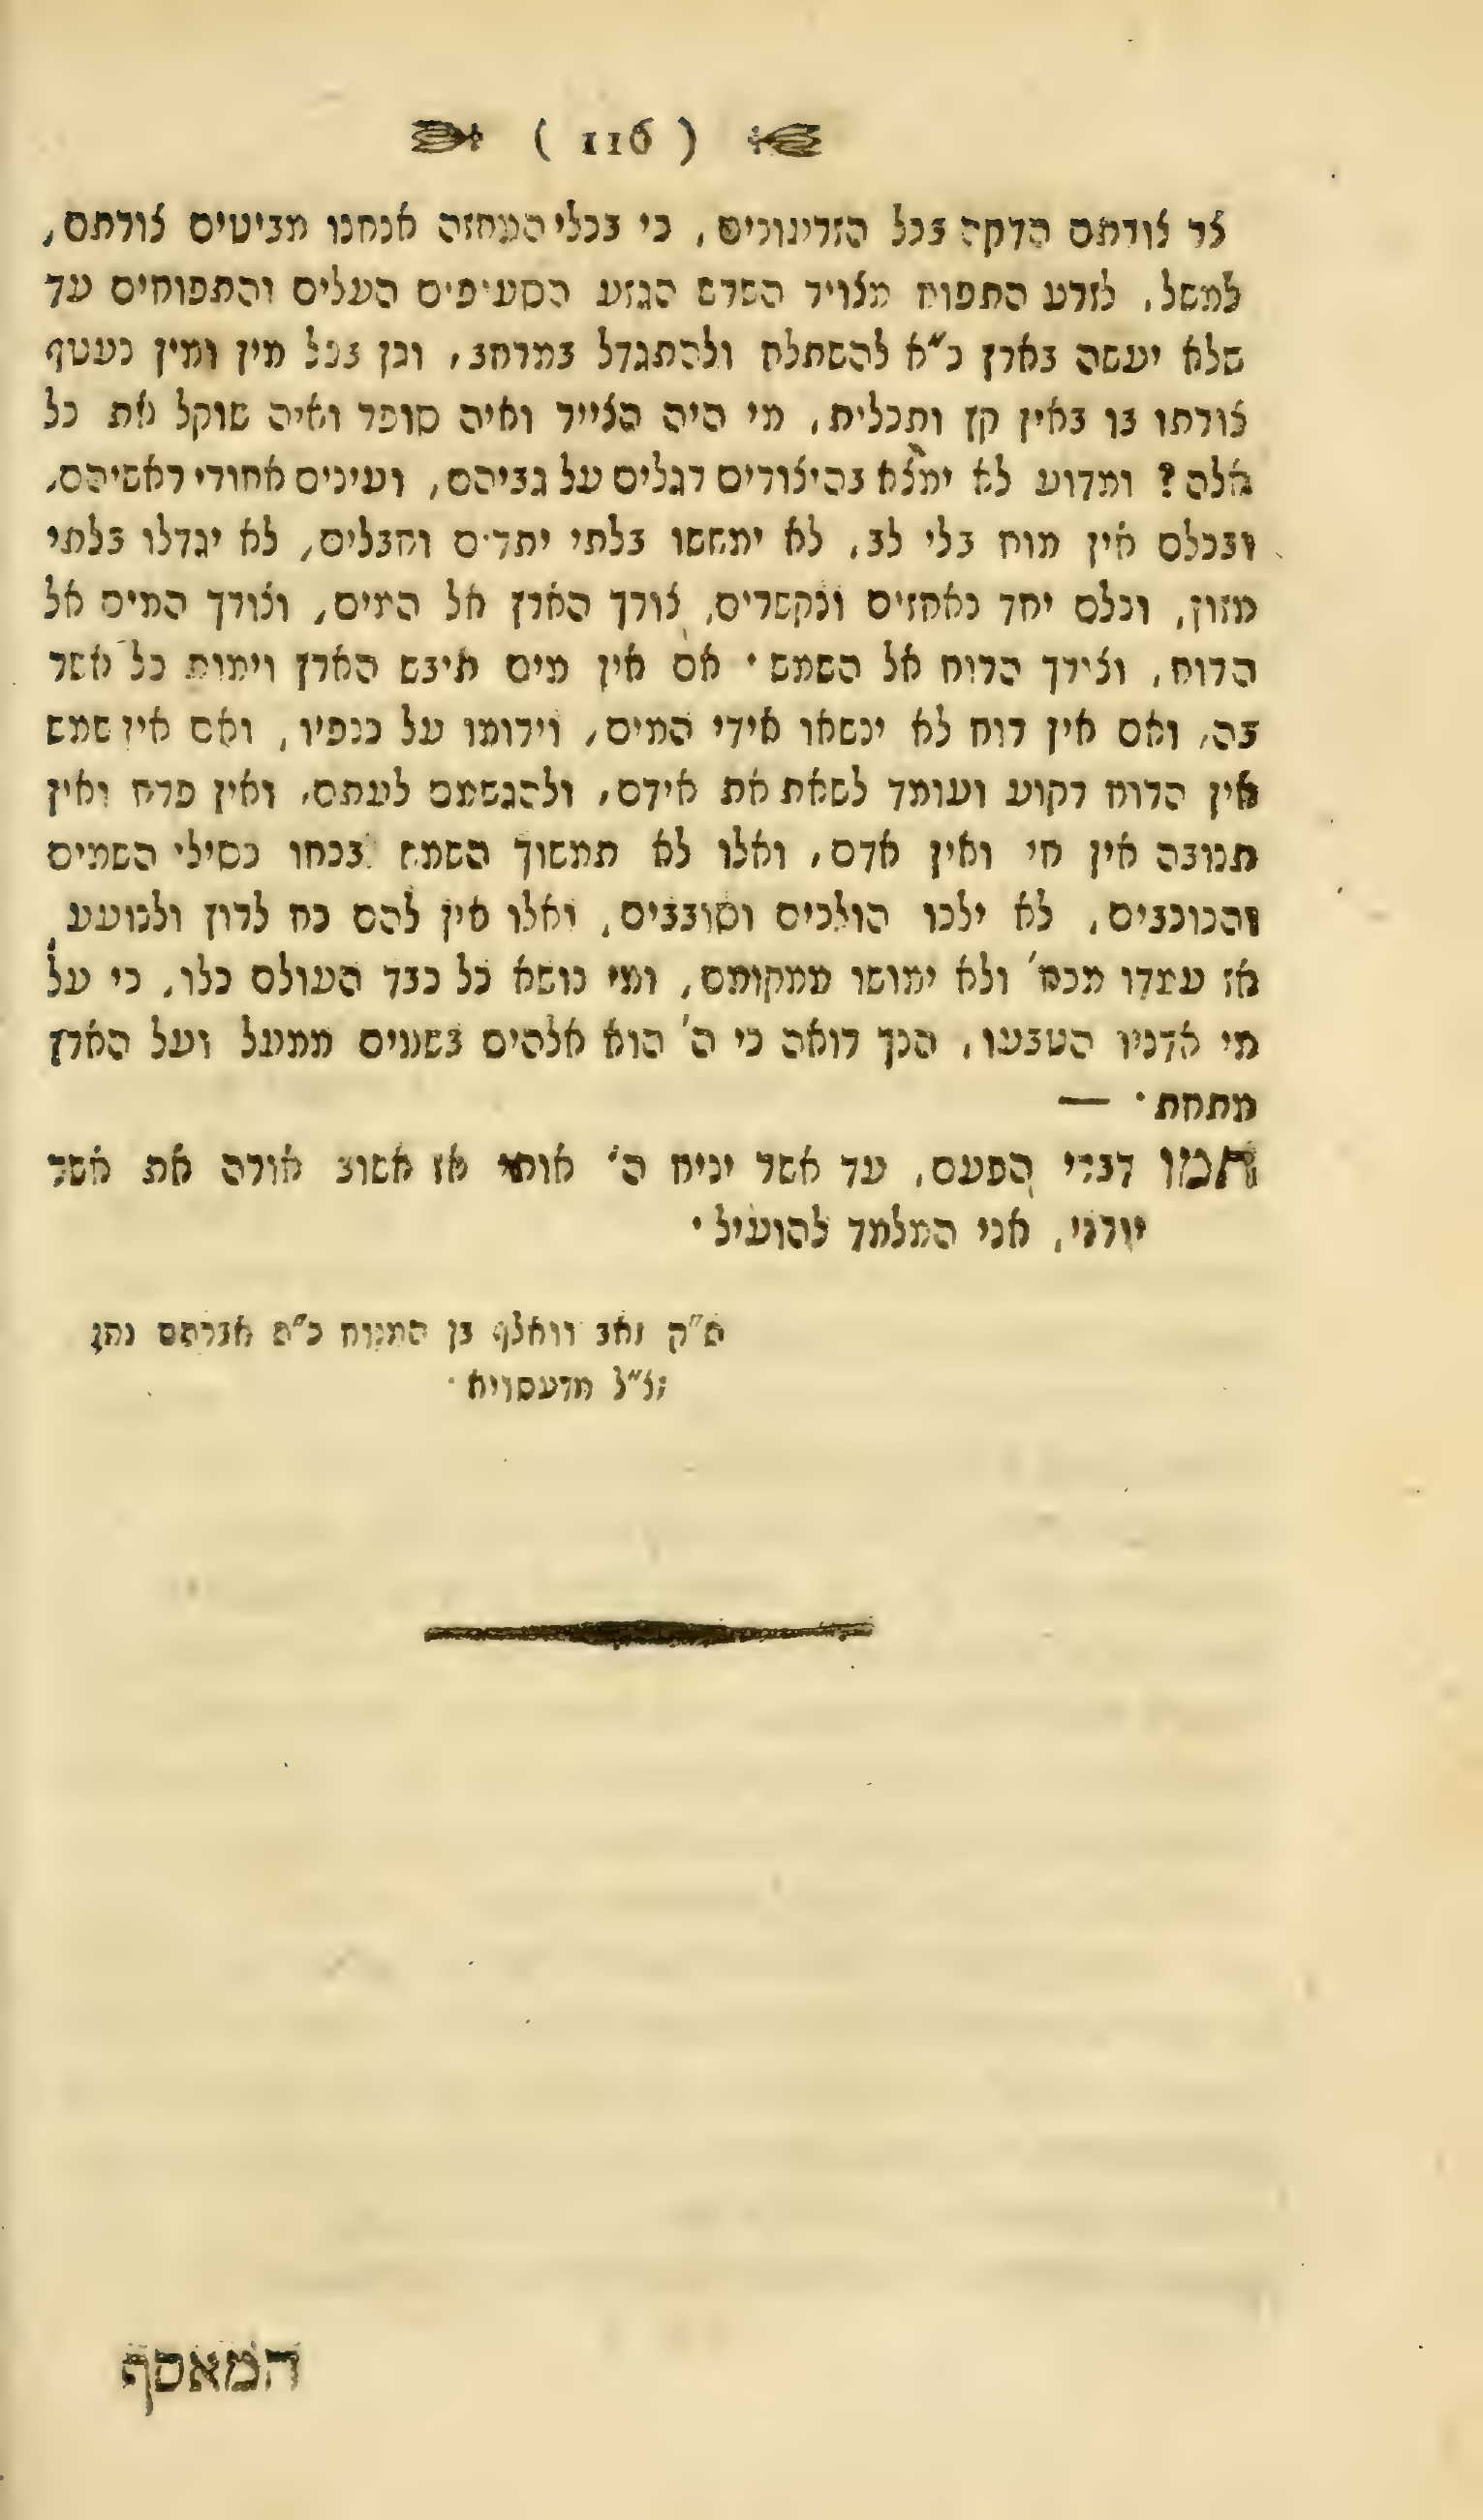 ( 116 )
צר צורתם הדקה בכל הזרעונים, כי בכלי המחזה אנחנו מביטים צורתם,
למשל, לזרע התפוח מצויר השרש הגזע הסעיפים העלים והתפוחים עד
שלא יעשה בארץ כ"א להשתלח ולהתגדל במרחב, וכן בכל מין ומין נעטף
צורתו בו באין קץ ותכלית, מי היה הצייר ואיה סופר ואיה שוקל את כל
אלה? ומדוע לא ימצא בהיצורים רגלים על גביהם, ועינים אחורי ראשיהם,
ובכלם אין מוח בלי לב, לא ימששו בלתי יתרים וחבלים, לא יגדלו בלתי
מזון, וכלם יחד נאחזים ונקשרים, צורך הארץ אל המים, וצורך המים אל
הרוח, וצורך הרוח אל השמש· אם אין מים תיבש הארץ וימות כל אשר
בה, ואם אין רוח לא ינשאו אידי המים, וירומו על כנפיו, ואם אין שמש
אין הרוח רקוע ועומד לשאת את אידם, ולהגשמם לעתם, ואין פרח ואין
תנובה אין חי ואין אדם, ואלו לא תמשוך השמש בכחו כסילי השמים
והכוכבים, לא ילכו הולכים וסובבים, ואלו אין להם כח לרוץ ולנועע,
אז עמדו מכח' ולא ימושו ממקומם, ומי נושא כל כבד העולם כלו, כי על
מי אדניו הטבעו, הנך רואה כי ה' הוא אלהים בשמים ממעל ועל הארץ
מתחת· —
תמו דברי הפעם, עד אשר יניח ה' אותי אז אשוב אורה את אשר
יורני, אני המלמד להועיל·
ה"ק זאב וואלף בן המנוח כ"ה אברהם נתן
זצ"ל מדעסויא·
המאסף